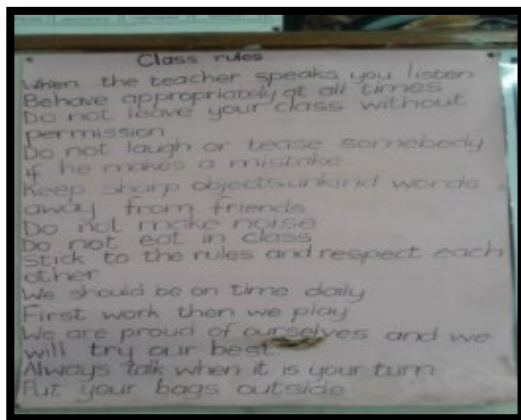 Class rules
When the teacher speaks you listen
Behave appropriately at all times
Do not leave your class without
permission
Do not laugh or tease somebody
if he makes a mistake.
Keep sharp objects, unkind words
away from friends
Do not make noise
Do not eat in class
Stick to the rules and respect each
other
We should be on time daily
First work then we play
We are proud of ourselves and we
will try our best
Always talk when it is your turn
Put your bags outside